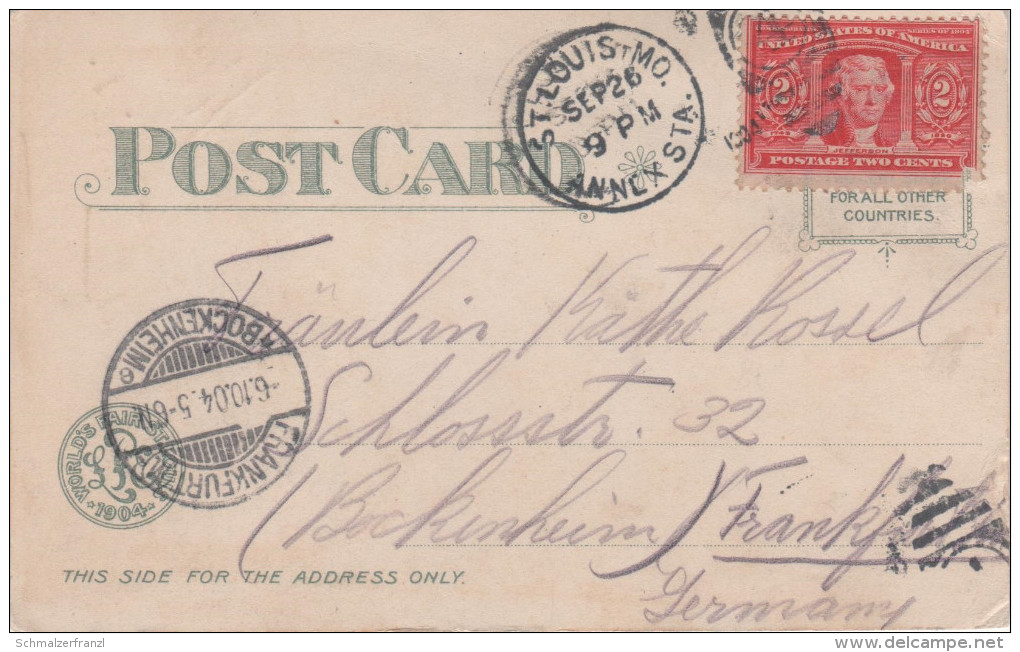 ST. LOUIS MO.
SEP 26
9 PM
ANNEX STA.
SERIES OF 1904
UNITED STATES OF AMERICA
2 2
JEFFERSON
POSTAGE TWO CENTS
POST CARD
FOR ALL OTHER
COUNTRIES.
Fräulein Käthe Rossel
Schlossstr. 32
(Bockenheim) Frankfurt
Germany
BOCKENHEIM
6.10.04.5-6N
FRANKFURT
WORLD'S FAIR ST.
1904
THIS SIDE FOR THE ADDRESS ONLY.
Schmalzerfranzl
delcampe.net